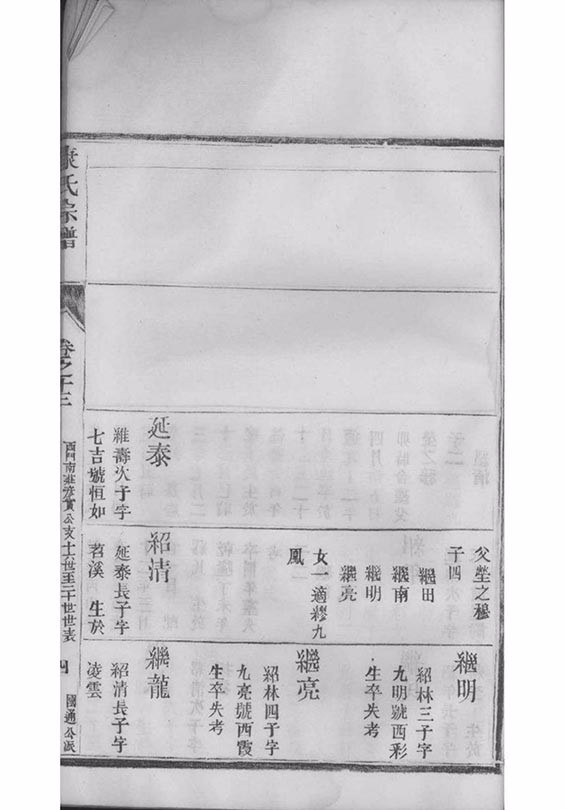 父塋之穆
子四
繼田
繼南
繼明
繼亮
女一適繆九
鳳
繼明
紹林三子字
九明號西彩
生卒失考
繼亮
紹林四子字
九亮號西霞
生卒失考
延泰
維壽次子字
七吉號恒如
紹清
延泰長子字
苕溪 生於
繼龍
紹清長子字
凌雲
康氏宗譜
卷之十三
西門南莊
公支十六世至二十世世表
四
國通公派